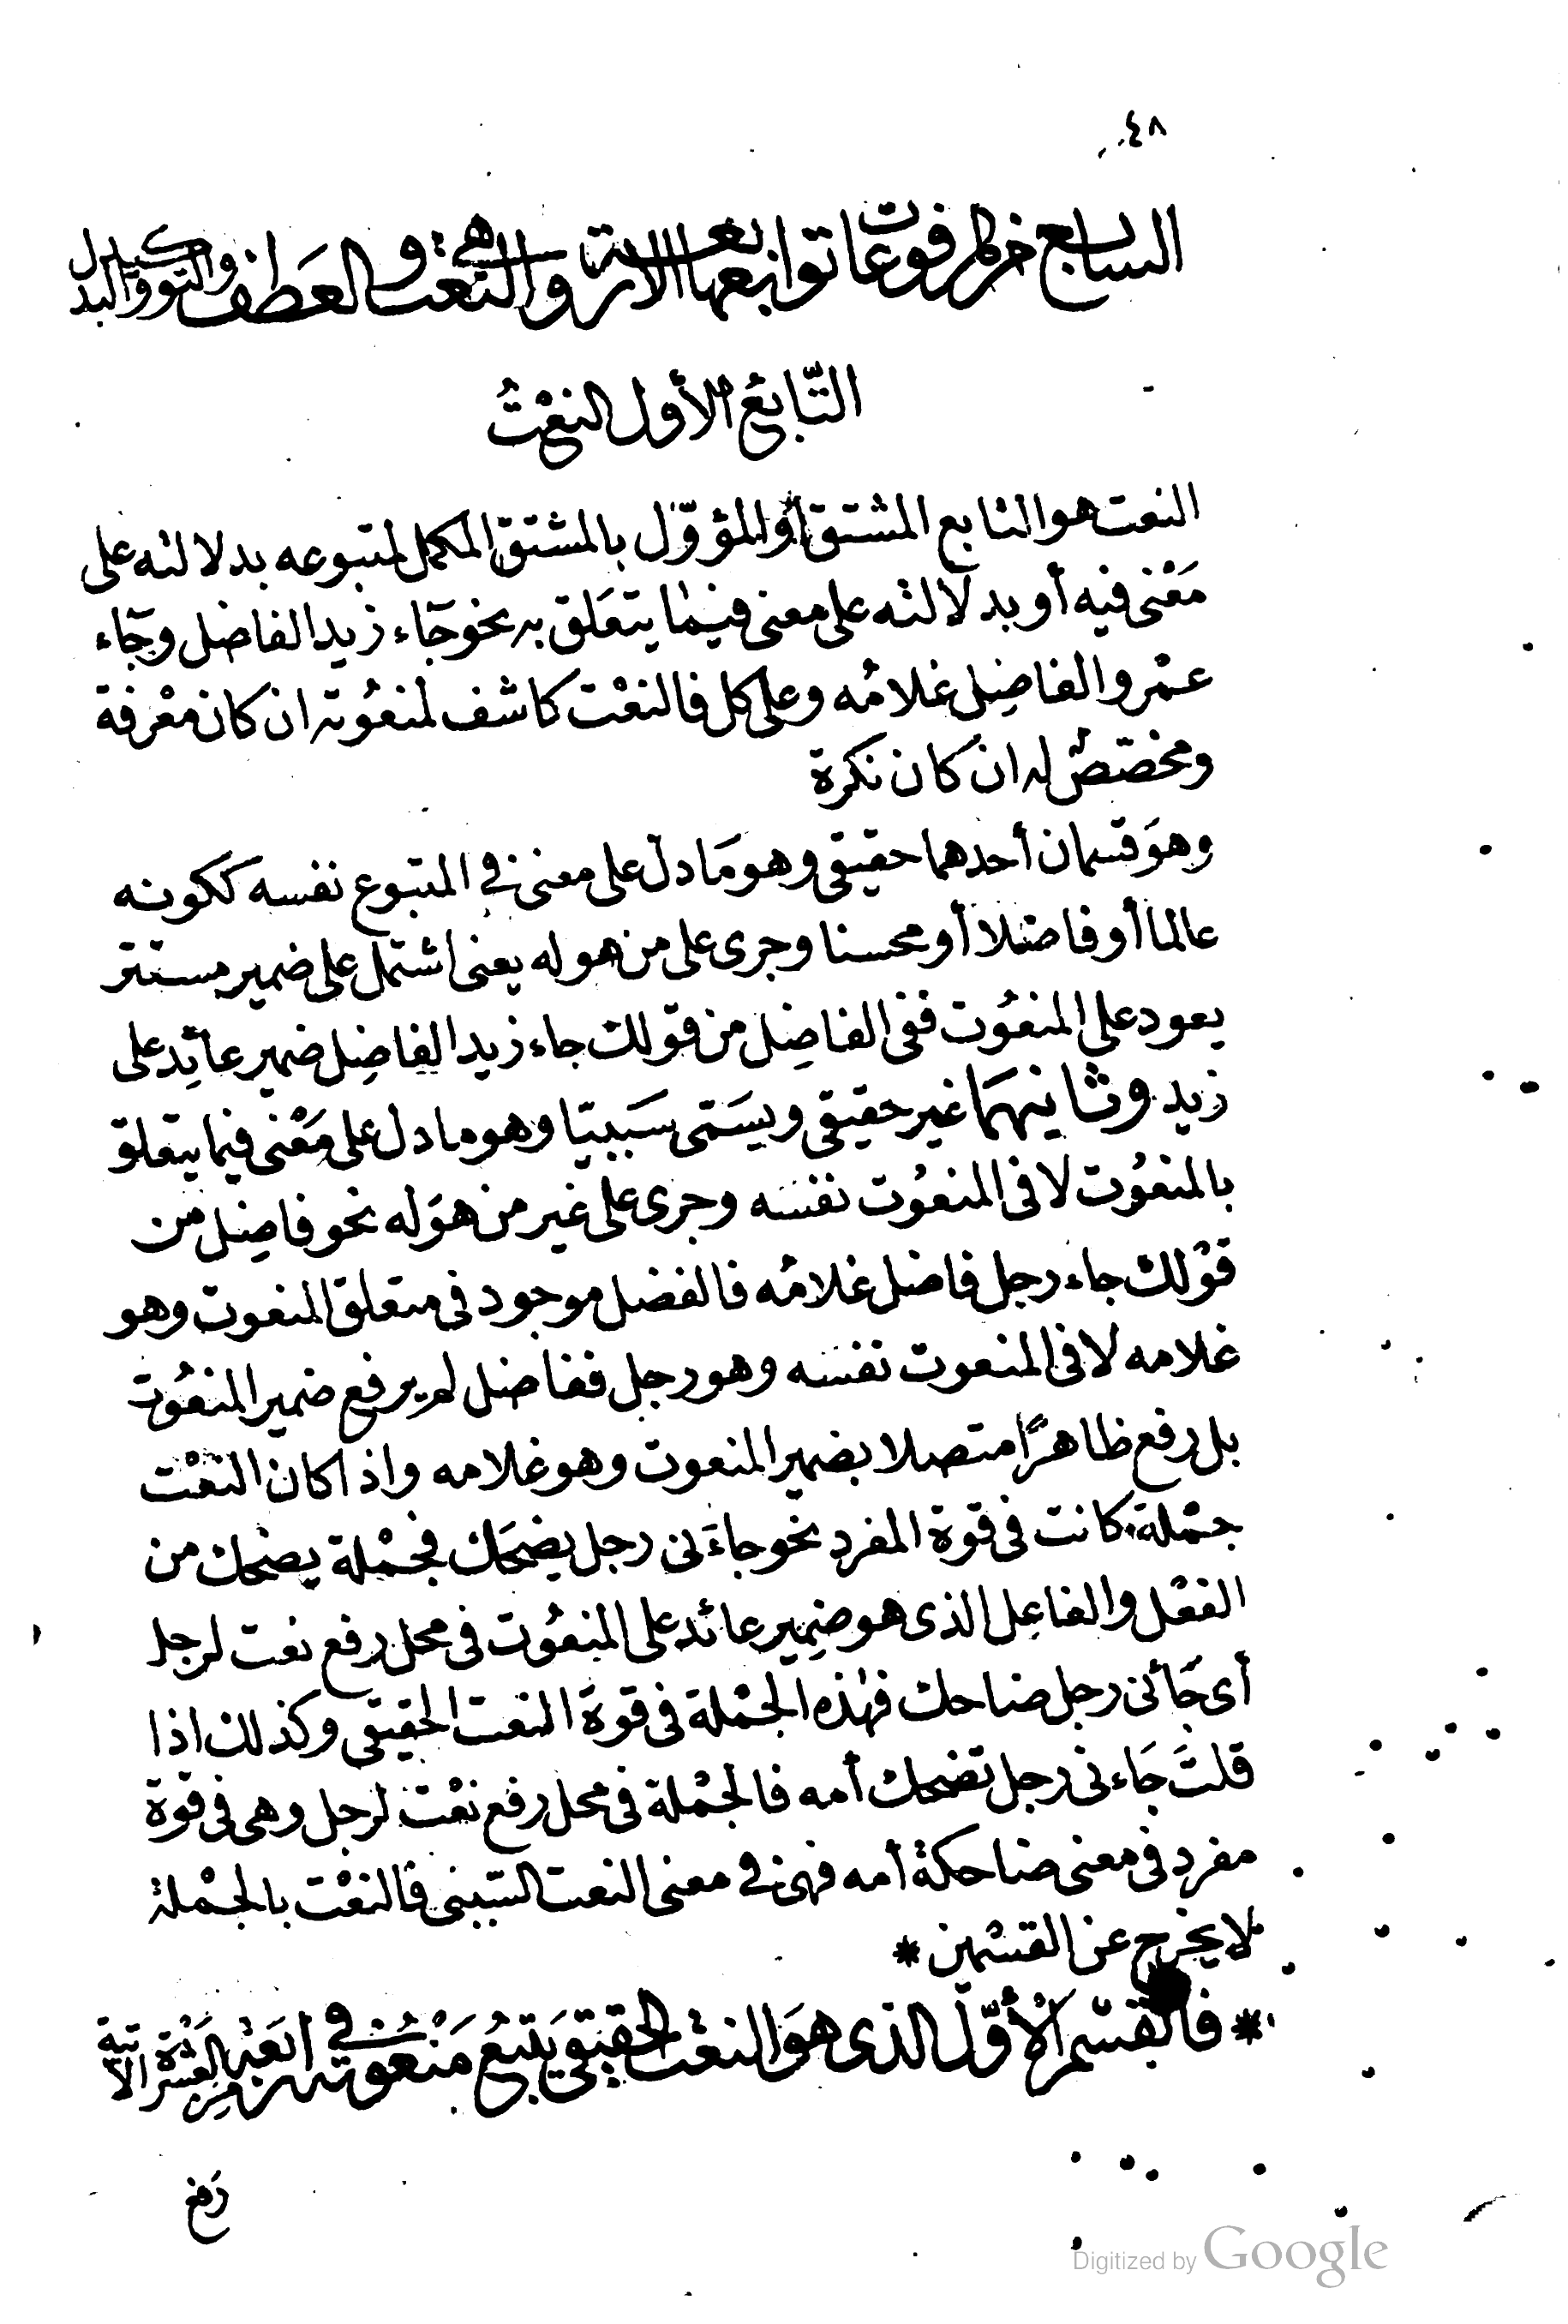 ٤٨
السابع من المرفوعات توابعها الاربعة وهى النعت والعطف والتوكيد والبدل
التّابعُ الأول النعْتُ
النعت هو التابع المشتق أو المؤوّل بالمشتق المكمل لمتبوعه بدلالته على
مَعْنى فيه أو بدلالته على معنى فيمَا يتعَلق به نحو جَاء زيد الفاضل وجَاء
عمْرو الفاضِل غلامُه وعلى كل فالنعْت كاشف لمنعُوته ان كان معْرفة
ومخصّصٌ له ان كان نكرة
وهوَ قسمان أحدهما حقيقى وهو مَا دل على معنى فى المتبوع نفسه ككونه
عالما أو فاضلا أو محسنا وجرى على من هو له يعنى اشتمل على ضمير مستتر
يعود على المنعُوت ففى الفاضِل من قولك جاء زيد الفاضِل ضمير عائِد على
زيد وثانيهمَا غير حقيقى ويسَمّى سَببيّا وهو ما دل على مَعْنى فيما يتعلق
بالمنعُوت لا فى المنعُوت نفسَه وجرى على غير من هوَ له نحو فاضِل من
قوْلك جاء رجل فاضل غلامُه فالفضل موجود فى متعلق المنعوت وهو
غلامه لا فى المنعوت نفسَه وهو رجل ففاضل لم يرفع ضمير المنعُوت
بل رفع ظاهرًا متصلا بضمير المنعوت وهو غلامه واذا كان النعْت
جمْلة كانت فى قوة المفرد نحو جاءَنى رجل يضحَك فجمْلة يضحك من
الفعْل والفاعِل الذى هو ضمِير عائد على المنعُوت فى محل رفع نعت لرجل
أى جَائنى رجل ضاحك فهٰذه الجمْلة فى قوة النعت الحقيقى وكذلك اذا
قلتَ جَاءنى رجل تضحك أمه فالجمْلة فى محل رفع نعْت لرجل وهى فى قوة
مفرد فى معنى ضاحكة أمه فهى فى معنى النعت السّببى فالنعْت بالجمْلة
لا يخرج عن القسْمين *
* فالقسْم الأوّل الذى هوَ النعْت الحقيقى يَتبَعُ مَنْعُوته فى أربعَة من العشرَة الاتية
رَفع
Digitized by Google